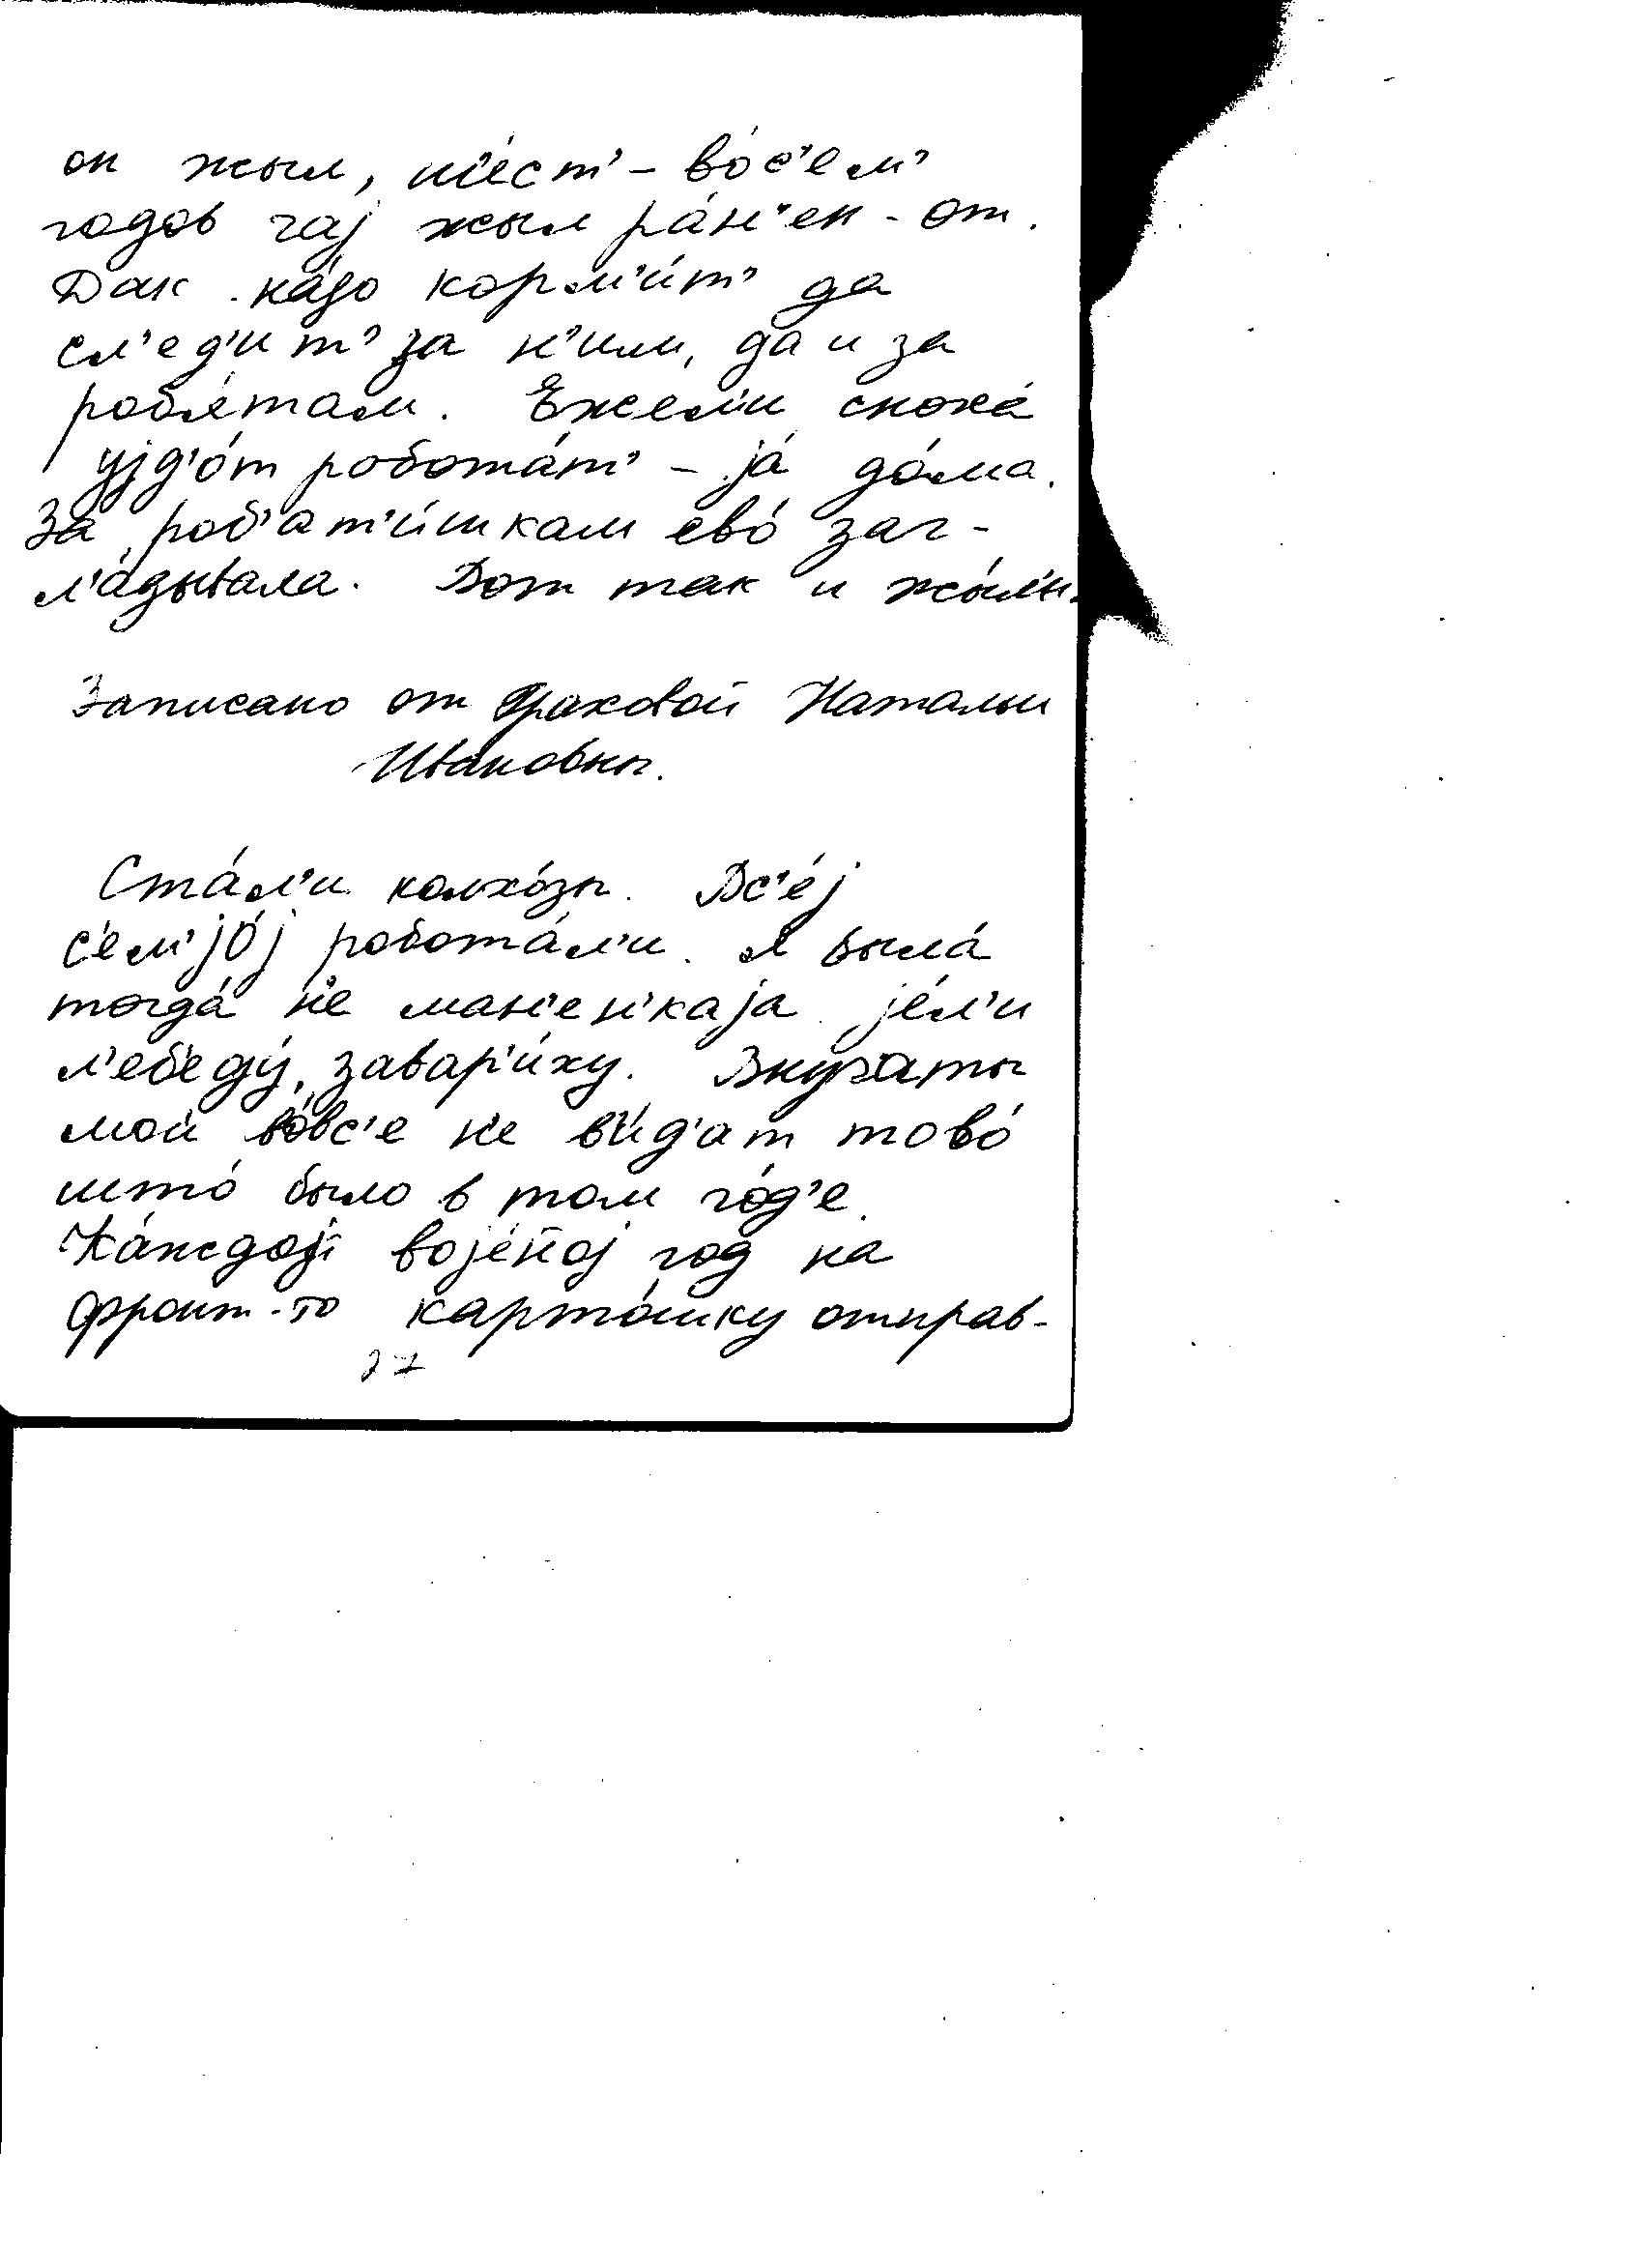 он жыл, ш'е́ст' – во́с'ем'
годов чај жыл ра́н'ен - от.
Дак на́до корм'и́т' да
сл'ед'и́т' за н'им, да и за
робя́там. Ежел'и сноха́
ујд'о́т робота́т' – ја́ до́ма.
За роб'ат'и́шкам ево́ заг-
л'а́дывала. Вот так и жы́л'и.
Записано от Фраковой Натальи
Ивановны.
Ста́л'и колхо́зы. Вс'е́ј
с'ем'јо́ј робота́л'и. Я была́
тогда́ н'е ман'ен'каја. је́л'и
л'еб'еду́, завар'и́ху. Внучаты
мои во́вс'е н'е ви́д'ат тово́
што́ было в том го́д'е.
Ка́ждој војеной год на
фронт-то карто́шку отправ-
27